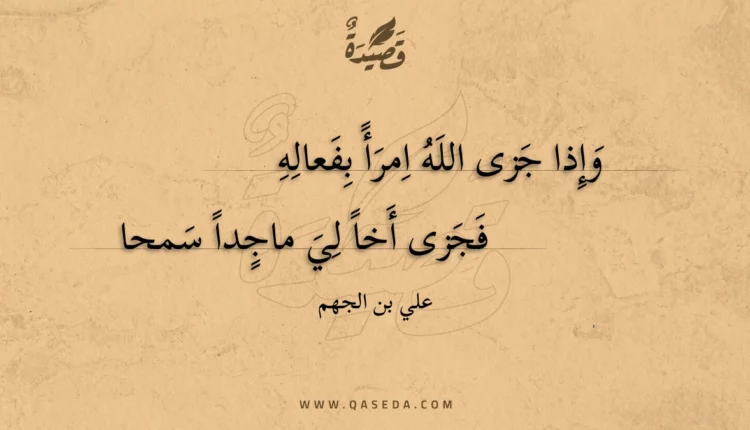 قَصِيْدَةٌ
وَإِذا جَزى اللَهُ اِمرَأً بِفَعالِهِ
فَجَزى أَخاً لِيَ ماجِداً سَمحا
علي بن الجهم
WWW.QASEDA.COM